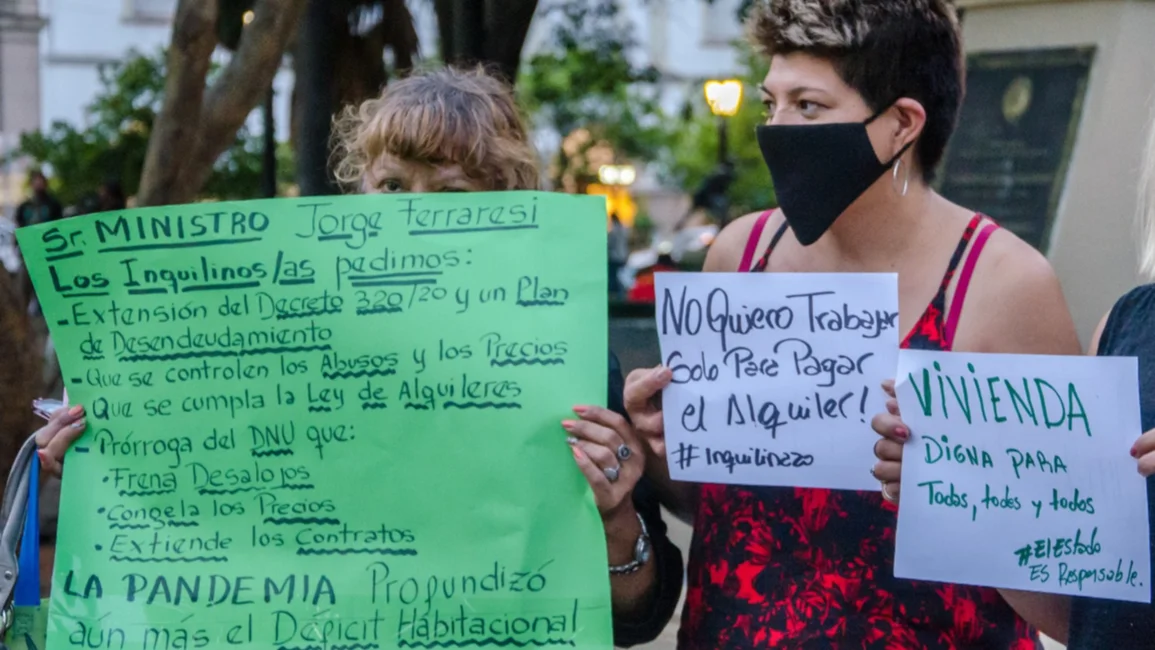 Sr. MINISTRO Jorge Ferraresi
Los Inquilinos/as pedimos:
-Extensión del Decreto 320/20 y un Plan
de Desendeudamiento
-Que se controlen los Abusos y los Precios
Que se cumpla la Ley de Alquileres
- Prórroga del DNU que:
•Frena Desalojos
•Congela los Precios
•Extiende los Contratos
LA PANDEMIA Profundizó
aún más el Déficit Habitacional
NO Quiero Trabajar
Solo Para Pagar
el Alquiler!
#Inquilinazo
VIVIENDA
DIGNA PARA
Todas, todes y todos
#ElEstado
ES Responsable.